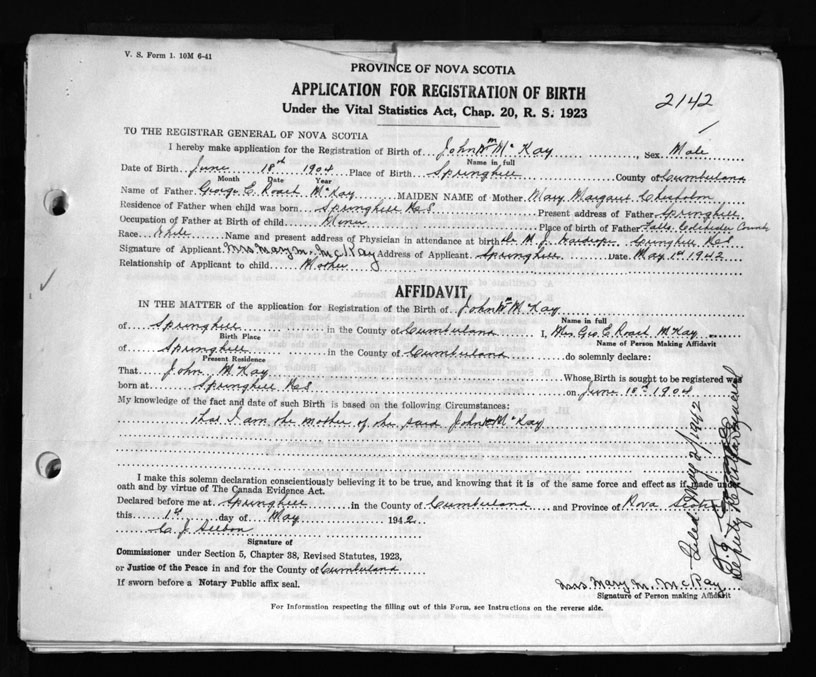 V. S. Form 1. 10M 6-41
PROVINCE OF NOVA SCOTIA
APPLICATION FOR REGISTRATION OF BIRTH
Under the Vital Statistics Act, Chap. 20, R. S. 1923
2142
TO THE REGISTRAR GENERAL OF NOVA SCOTIA
I hereby make application for the Registration of Birth of John Wm McKay, Sex Male
Name in full
Date of Birth June 18th 1904 Place of Birth Springhill County of Cumberland
Month Date Year
Name of Father George C. Roach McKay MAIDEN NAME of Mother Mary Margaret Chisholm
Residence of Father when child was born Springhill N.S. Present address of Father Springhill
Occupation of Father at Birth of child Miner Place of birth of Father Falls, Colchester County
Race White Name and present address of Physician in attendance at birth Dr M. J. Springhill N.S
Signature of Applicant Mrs Mary M. McKay Address of Applicant Springhill Date May 1st 1942
Relationship of Applicant to child Mother
AFFIDAVIT
IN THE MATTER of the application for Registration of the Birth of John Wm McKay
Name in full
of Springhill in the County of Cumberland I, Mrs Geo. C. Roach McKay
Birth Place Name of Person Making Affidavit
of Springhill in the County of Cumberland do solemnly declare:
Present Residence
That John McKay Whose Birth is sought to be registered was
born at Springhill N.S on June 18th 1904
My knowledge of the fact and date of such Birth is based on the following Circumstances:
that I am the mother of the said John Wm McKay
I make this solemn declaration conscientiously believing it to be true, and knowing that it is of the same force and effect as if made under
oath and by virtue of The Canada Evidence Act.
Declared before me at Springhill in the County of Cumberland and Province of Nova Scotia
this 1st day of May 1942
C. J.
Signature of
Commissioner under Section 5, Chapter 38, Revised Statutes, 1923,
or Justice of the Peace in and for the County of Cumberland
If sworn before a Notary Public affix seal.
Mrs. Mary M. McKay
Signature of Person making Affidavit
For Information respecting the filling out of this Form, see Instructions on the reverse side.
Filed May 2/1942
Deputy Registrar General